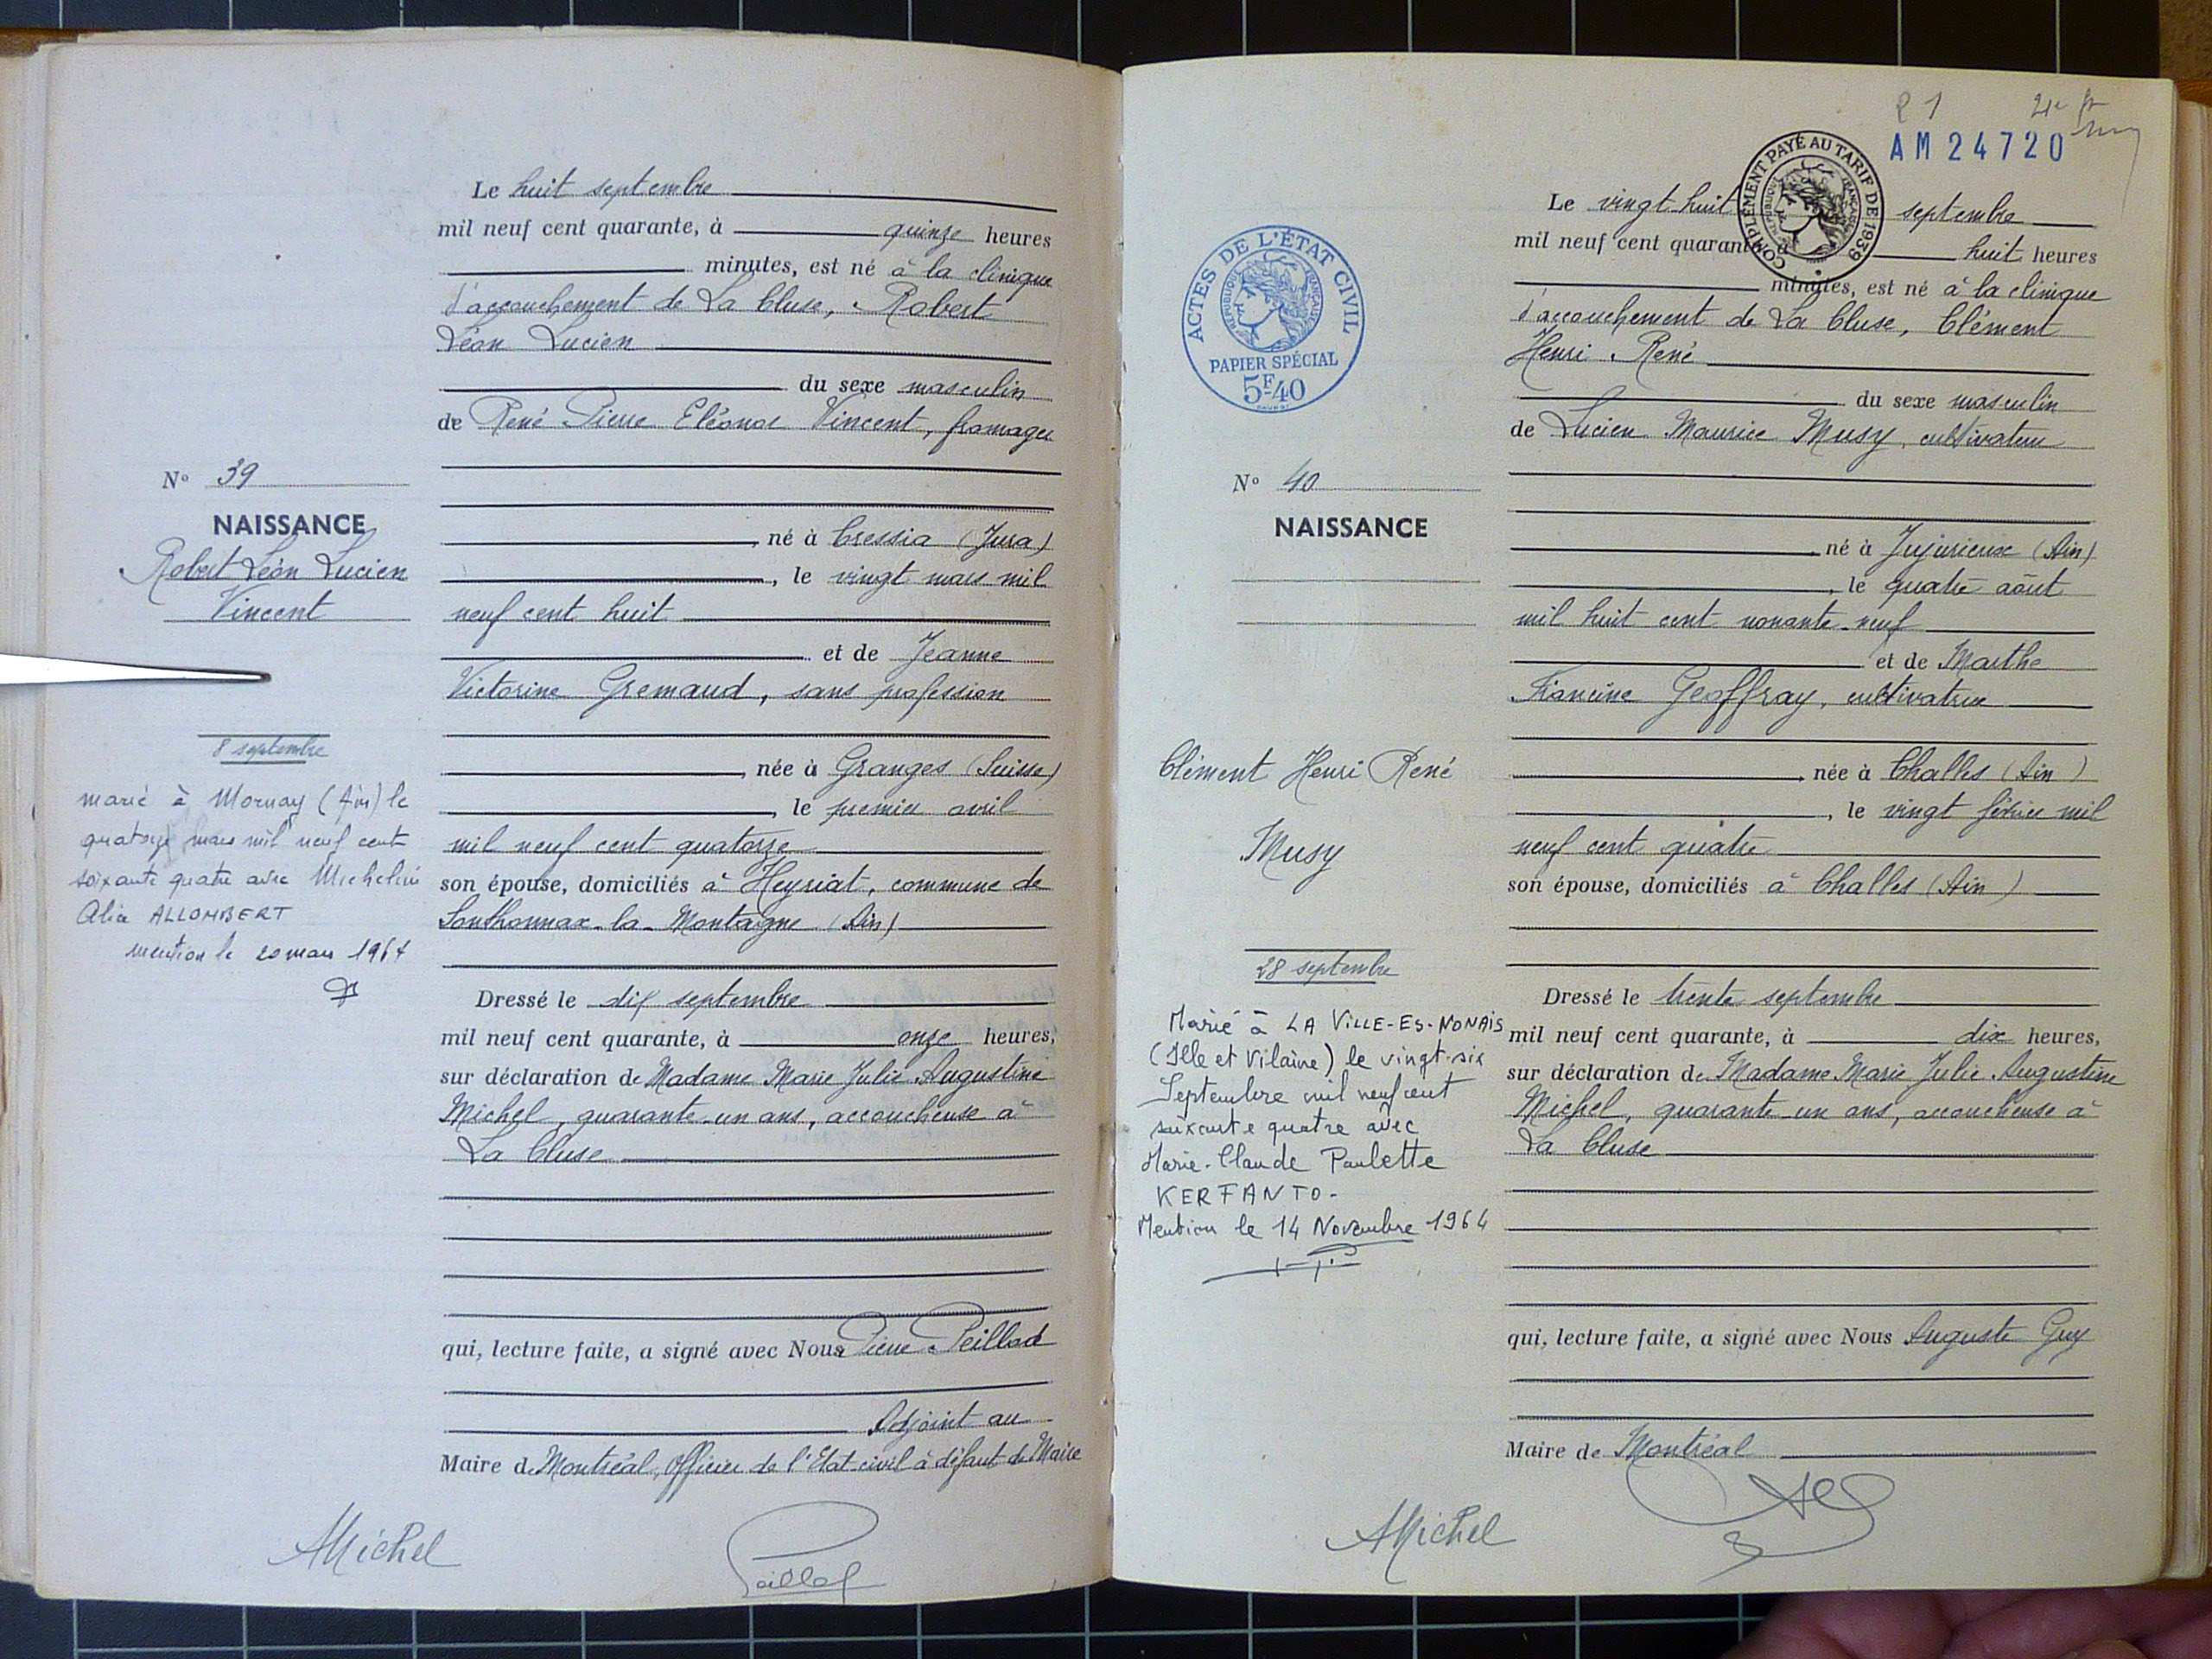 Le huit septembre
mil neuf cent quarante, à quinze heures
minutes, est né à la clinique
d'accouchement de La Cluse, Robert
Léon Lucien
du sexe masculin
de René Pierre Eléonor Vincent, fromager
né à Cressia (Jura)
, le vingt mars mil
neuf cent huit
et de Jeanne
Victorine Gremaud, sans profession
, née à Granges (Suisse)
, le premier avril
mil neuf cent quatorze
son épouse, domiciliés à Heyriat, commune de
Sonthonnax-la-Montagne (Ain)
Dressé le dix septembre
mil neuf cent quarante, à onze heures,
sur déclaration de Madame Marie Julie Augustine
Michel, quarante-un ans, accoucheuse à
La Cluse
qui, lecture faite, a signé avec Nous Pierre Peillod
Adjoint au
Maire de Montréal, Officier de l'Etat-civil à défaut du Maire
AMichel
Peillod
N° 39
NAISSANCE
Robert Léon Lucien
Vincent
8 septembre
marié à Mornay (Ain) le
quatorze mars mil neuf cent
soixante quatre avec Micheline
Alice ALLOMBERT
mention le 20 mars 1964
4e
AM24720
COMPLÉMENT PAYÉ AU TARIF DE 1939
RÉPUBLIQUE FRANÇAISE
Le vingt-huit septembre
mil neuf cent quarante, à huit heures
minutes, est né à la clinique
d'accouchement de La Cluse, Clément
Henri René
du sexe masculin
de Lucien Maurice Musy, cultivateur
né à Jujurieux (Ain)
, le quatre août
mil huit cent nonante-neuf
et de Marthe
Francine Geoffray, cultivatrice
, née à Challes (Ain)
, le vingt février mil
neuf cent quatre
son épouse, domiciliés à Challes (Ain)
Dressé le trente septembre
mil neuf cent quarante, à dix heures,
sur déclaration de Madame Marie Julie Augustine
Michel, quarante-un ans, accoucheuse à
La Cluse
qui, lecture faite, a signé avec Nous Auguste Guy
Maire de Montréal
AMichel
ACTES DE L'ÉTAT CIVIL
RÉPUBLIQUE FRANÇAISE
PAPIER SPÉCIAL
5F40
N° 40
NAISSANCE
Clément Henri René
Musy
28 septembre
Marié à LA VILLE-ES-NONAIS
(Ille et Vilaine) le vingt-six
Septembre mil neuf cent
soixante quatre avec
Marie-Claude Paulette
KERFANTO-
Mention le 14 Novembre 1964